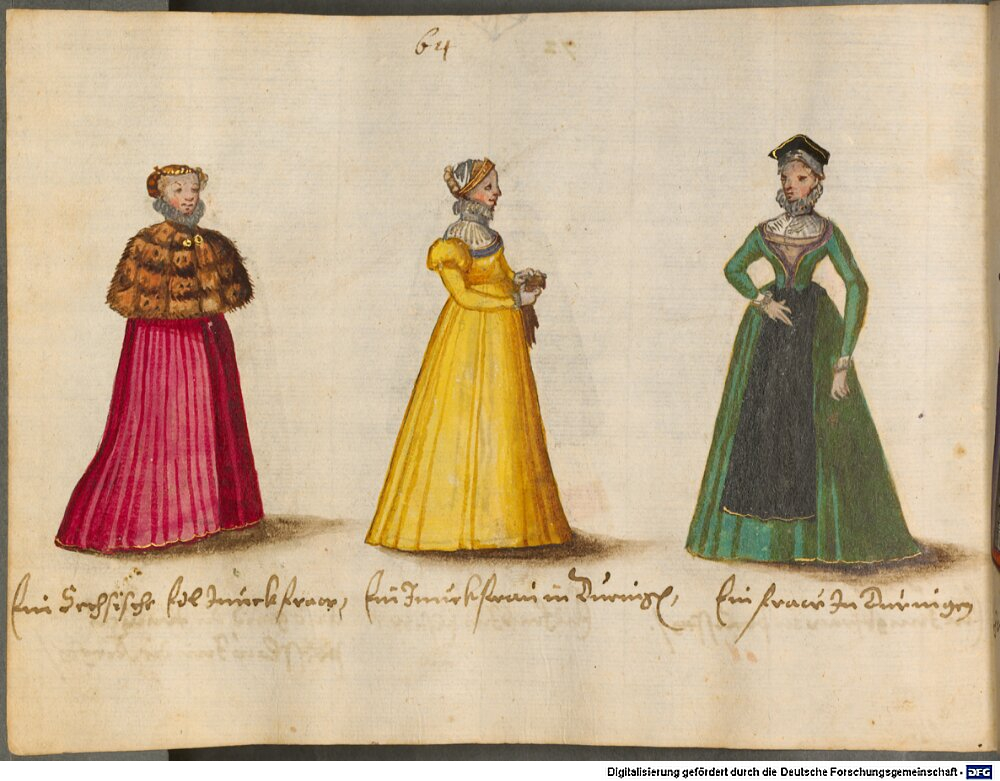 64
Ein Sechsische Edl Junckfraw,
Ein Junckfraw in Duringen,
Ein fraw In Duringen
Digitalisierung gefördert durch die Deutsche Forschungsgemeinschaft - DFG